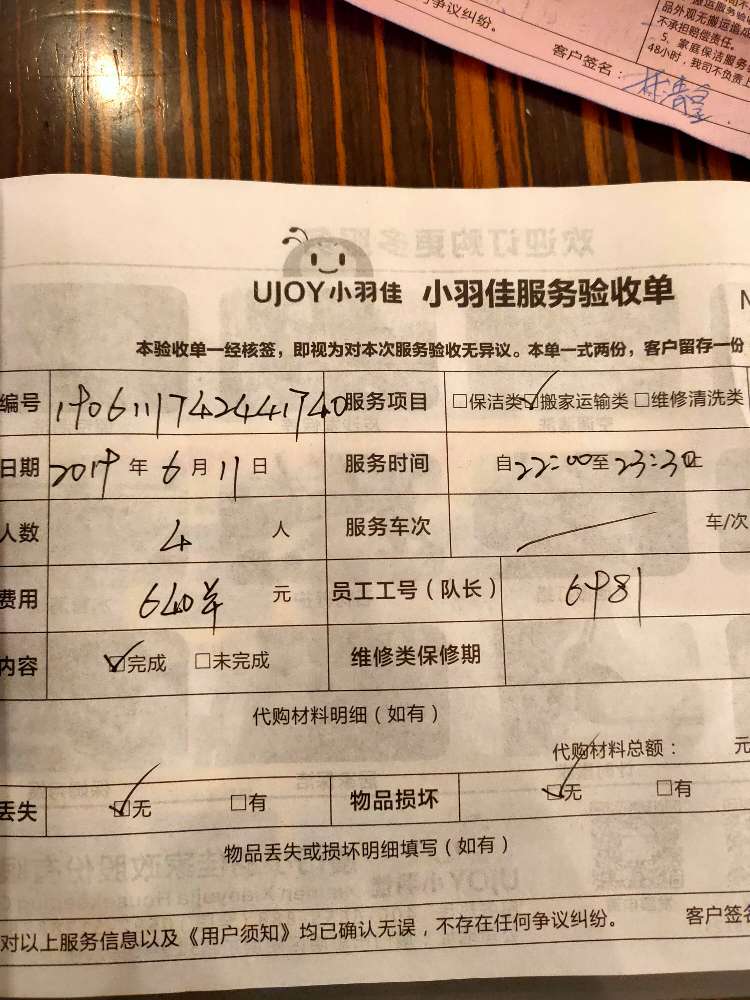 争议纠纷。
搬运服务验
品外观无搬运造成
不承担赔偿责任。
5、家庭保洁服务
48小时，我司不负责上
客户签名：
UJOY小羽佳 小羽佳服务验收单
本验收单一经核签，即视为对本次服务验收无异议。本单一式两份，客户留存一份
编号 1906111742441740 服务项目 □保洁类 ☑搬家运输类 □维修清洗类
日期 2019年6月11日 服务时间 自22:00至23:30止
人数 4 人 服务车次 车/次
费用 640 元 员工工号（队长） 6981
内容 ☑完成 □未完成 维修类保修期
代购材料明细（如有）
代购材料总额： 元
丢失 ☑无 □有 物品损坏 ☑无 □有
物品丢失或损坏明细填写（如有）
对以上服务信息以及《用户须知》均已确认无误，不存在任何争议纠纷。 客户签名